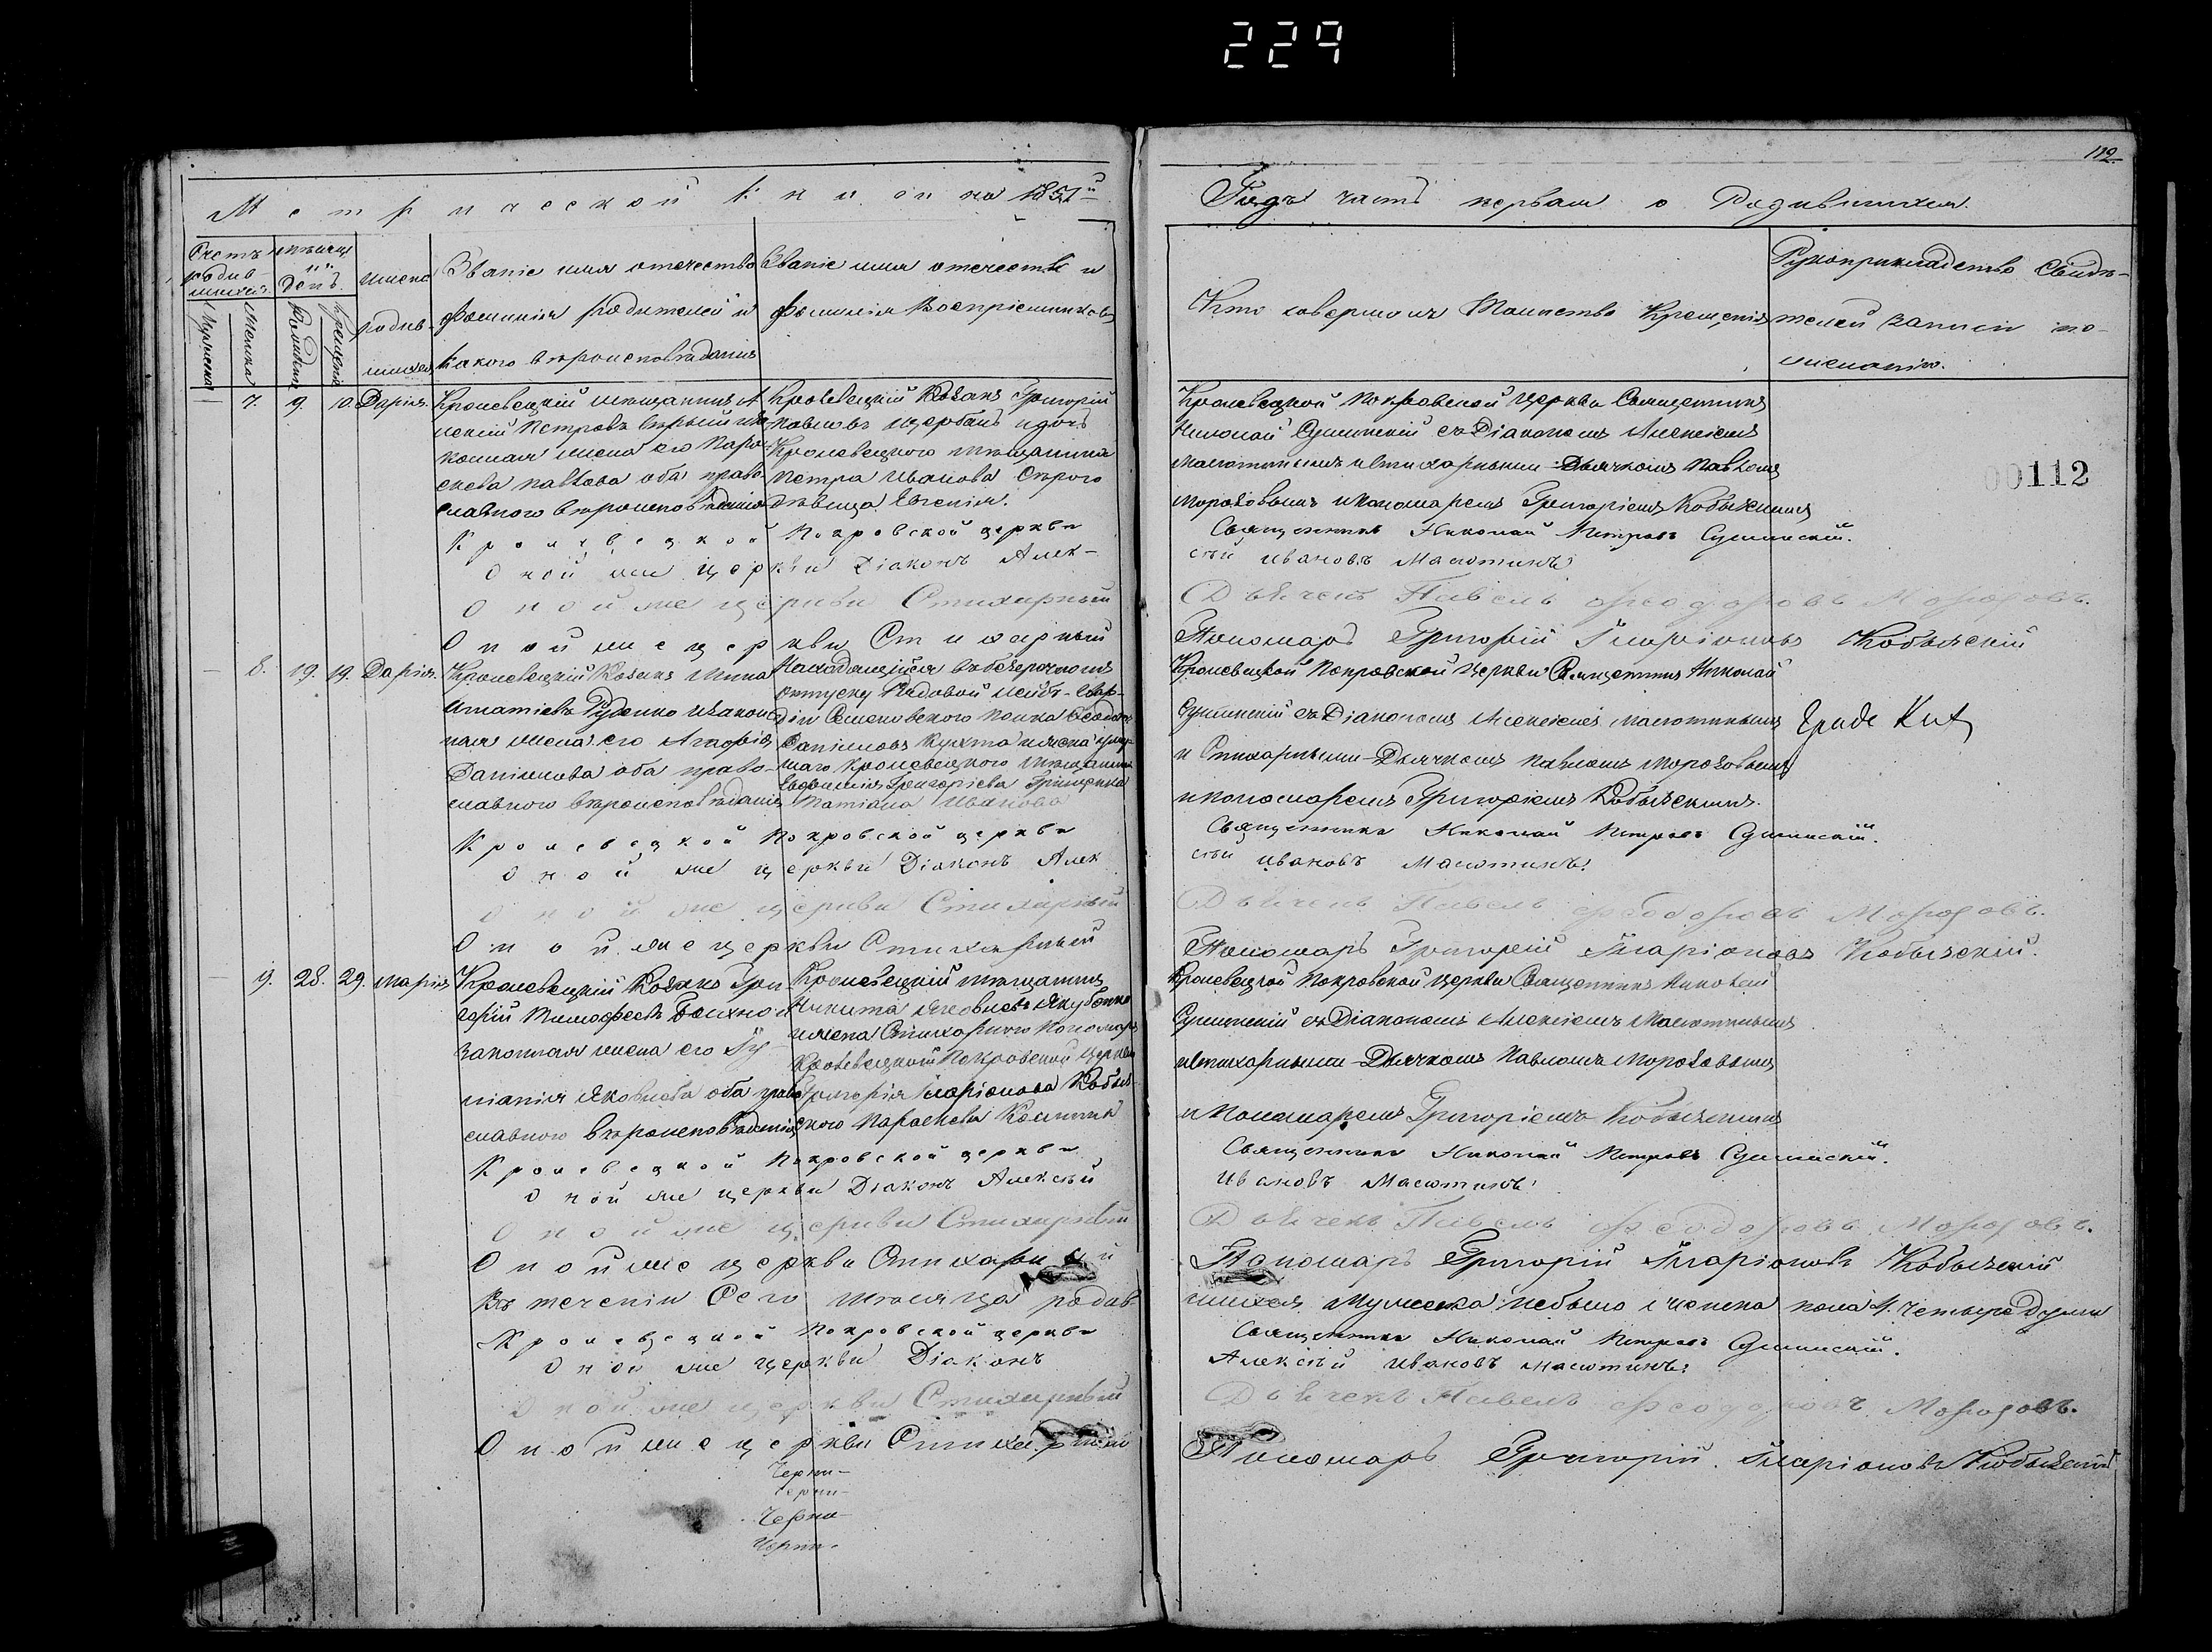 229
112
Метрической книги на 1851й
Годъ часть первая о Родившихся.
Счетъ родившихся.
Мужеска
Женска
мѣсяцъ и день.
Рожденія
Крещенія
имена родившихся
Званіе имя отечество
фамилія родителей и
какого вѣроисповѣданія
Званіе имя отечество и
фамилія Воспріемниковъ
Кто совершалъ Таинство Крещенія
Рукоприкладство Свидѣ-
телей записи по
желанію.
7. 9. 10. Дарія.
Кролевецкій мѣщанинъ
Петровъ
конная жена его Пара-
скева Павлова оба право-
славного вѣроисповѣданія
Кролевецкій Козакъ Григорій
Павловъ Щербакъ и дочь
Кролевецкого мѣщанина
Петра Иванова Сѣрого
дѣвица Евгенія.
Кролевецкой Покровской церкви Священникъ
Николай Сулимскій съ Діакономъ Алексіемъ
Малютинымъ и стихарными Дьячкомъ Павломъ
Морозовымъ и пономаремъ Григоріемъ Кобызскимъ
00112
Кролевецкой Покровской церкви
Священникъ Николай Петровъ Сулимскій.
Оной же церкви Діаконъ Алек-
сѣй Ивановъ Малютинъ
Оной же церкви Стихарный
Дьячекъ Павелъ Феодоровъ Морозовъ.
Оной же церкви Стихарный
Пономарь Григорій Иларіоновъ Кобызскій
8. 19. 19. Дарія.
Кролевецкій Козакъ
Игнатіевъ Руденко и закон-
ная жена его Агафія
Даніилова оба право-
славного вѣроисповѣданія
Находящійся въ безсрочномъ
отпуску Рядовой Лейбъ-Гвар-
діи Семеновского полка Феодоръ
Даніиловъ Кухта и жена умер-
шаго Кролевецкого мѣщанина
Евфимія Григоріева Грищенка
Татіана Иванова
Кролевецкой Покровской церкви Священникъ Николай
Сулимскій съ Діакономъ Алексіемъ Малютинымъ
и Стихарными Дьячкомъ Павломъ Морозовымъ
и пономаремъ Григоріемъ Кобызскимъ.
Кролевецкой Покровской церкви
Священникъ Николай Петровъ Сулимскій.
Оной же церкви Діаконъ Алек
сѣй Ивановъ Малютинъ.
Оной же церкви Стихарный
Дьячекъ Павелъ Феодоровъ Морозовъ.
Оной же церкви Стихарный
Пономарь Григорій Иларіоновъ Кобызскій.
9. 28. 29. Марія
Кролевецкій Козакъ Гри-
горій Тимофеевъ
законная жена его Іу-
ліанія Яковлева оба право
славного вѣроисповѣданія
Кролевецкій мѣщанинъ
Никита Яковлевъ Якубенко
и жена Стихарного Пономаря
Кролевецкой Покровской церкви
Григорія Иларіонова Кобыз-
ского Параскева
Кролевецкой Покровской церкви Священникъ Николай
Сулимскій съ Діакономъ Алексіемъ Малютинымъ
и стихарными Дьячкомъ Павломъ Морозовымъ
и Пономаремъ Григоріемъ Кобызскимъ
Кролевецкой Покровской церкви
Священникъ Николай Петровъ Сулимскій.
Оной же церкви Діаконъ Алексѣй
Ивановъ Малютинъ.
Оной же церкви Стихарный
Дьячекъ Павелъ Феодоровъ Морозовъ.
Оной же церкви Стихарный
Пономарь Григорій Иларіоновъ Кобызскій
Въ теченіи Сего мѣсяца родив-
шихся Мужеска небыло женска пола 4. четыре души
Кролевецкой Покровской церкви
Священникъ Николай Петровъ Сулимскій.
Оной же церкви Діаконъ
Алексѣй Ивановъ Малютинъ.
Оной же церкви Стихарный
Дьячекъ Павелъ Феодоровъ Морозовъ.
Оной же церкви Стихарный
Пономарь Григорій Иларіоновъ Кобызскій
Черни-
Черни-
Черни-
Черни-